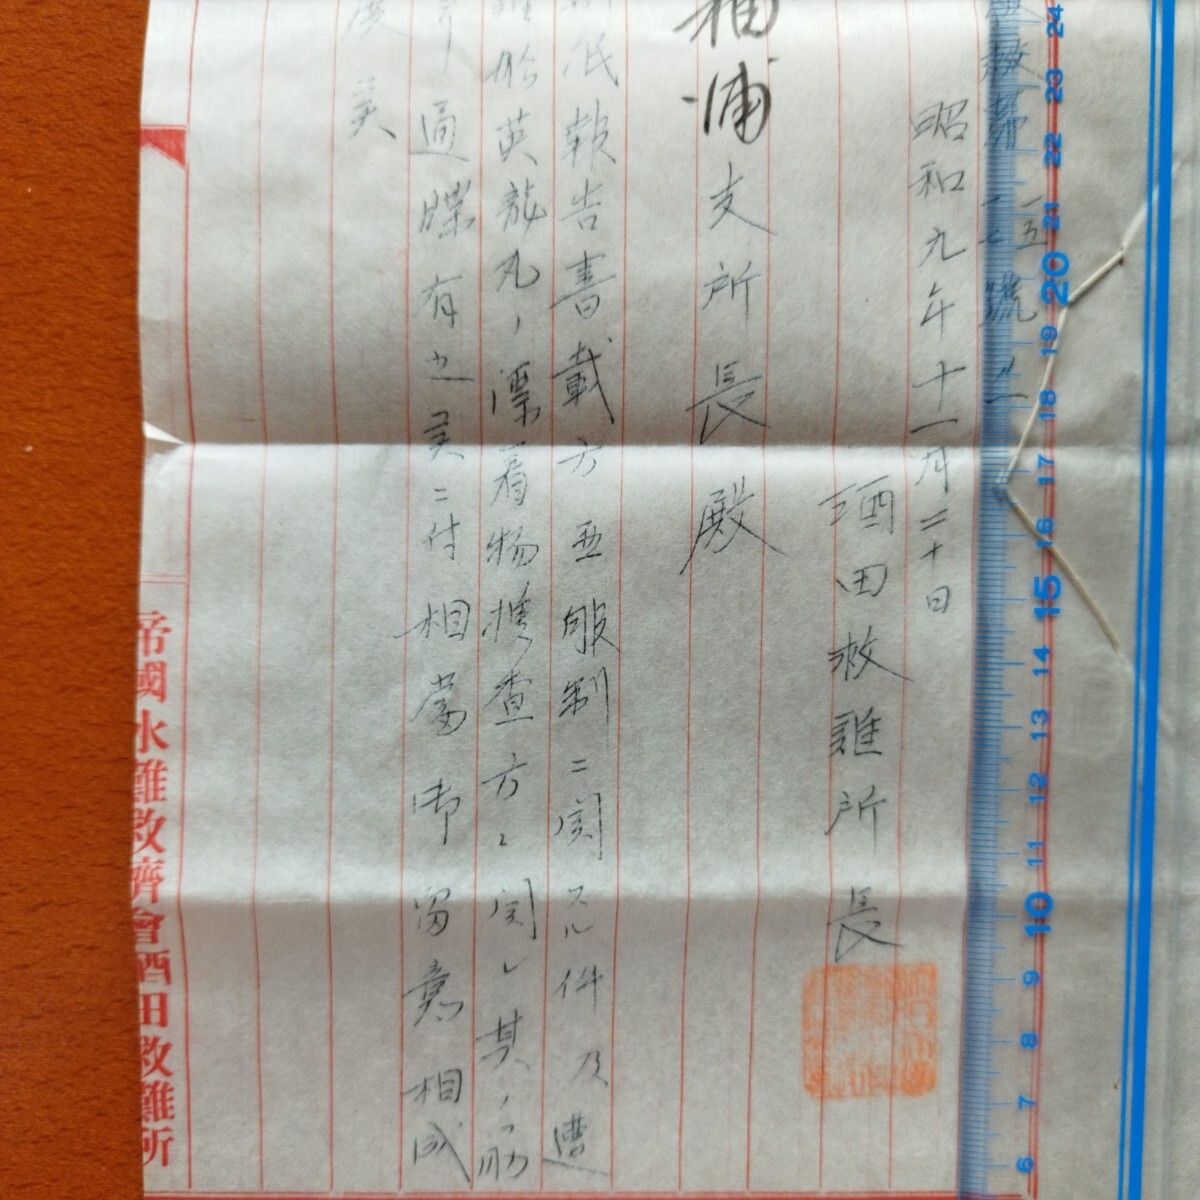 救第二七號ノ一
一五
昭和九年十一月二十日
酒田救難所長
相浦支所長殿
紙報告書載方並服制ニ関スル件及遭
難船英龍丸ノ漂着物捜査方ニ関シ其ノ筋
通牒有之候ニ付相當御留意相成
度候
帝國水難救濟會酒田救難所
24
23
22
21
20
19
18
17
16
15
14
13
12
11
10
9
8
7
6